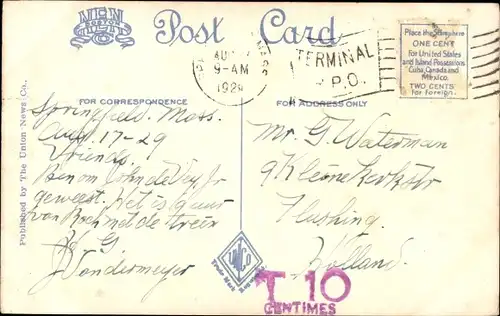 Post Card
AUG
9-AM
1929
MASS
TERMINAL
P.O.
Place the Stamp here
ONE CENT
for United States
and Island Possessions
Cuba, Canada and
Mexico.
TWO CENTS
for Foreign.
FOR CORRESPONDENCE
FOR ADDRESS ONLY
Published by The Union News Co.,
Springfield, Mass.
Aug. 17-29
Vriends
Ben om John de Vey Jr
geweest. Het is guur
van Rock net de trein
J. Vandermeyer
Mr. G. Waterman
9 Kleine Kerkstr
Flushing
Holland.
Trade Mark
T 10
CENTIMES